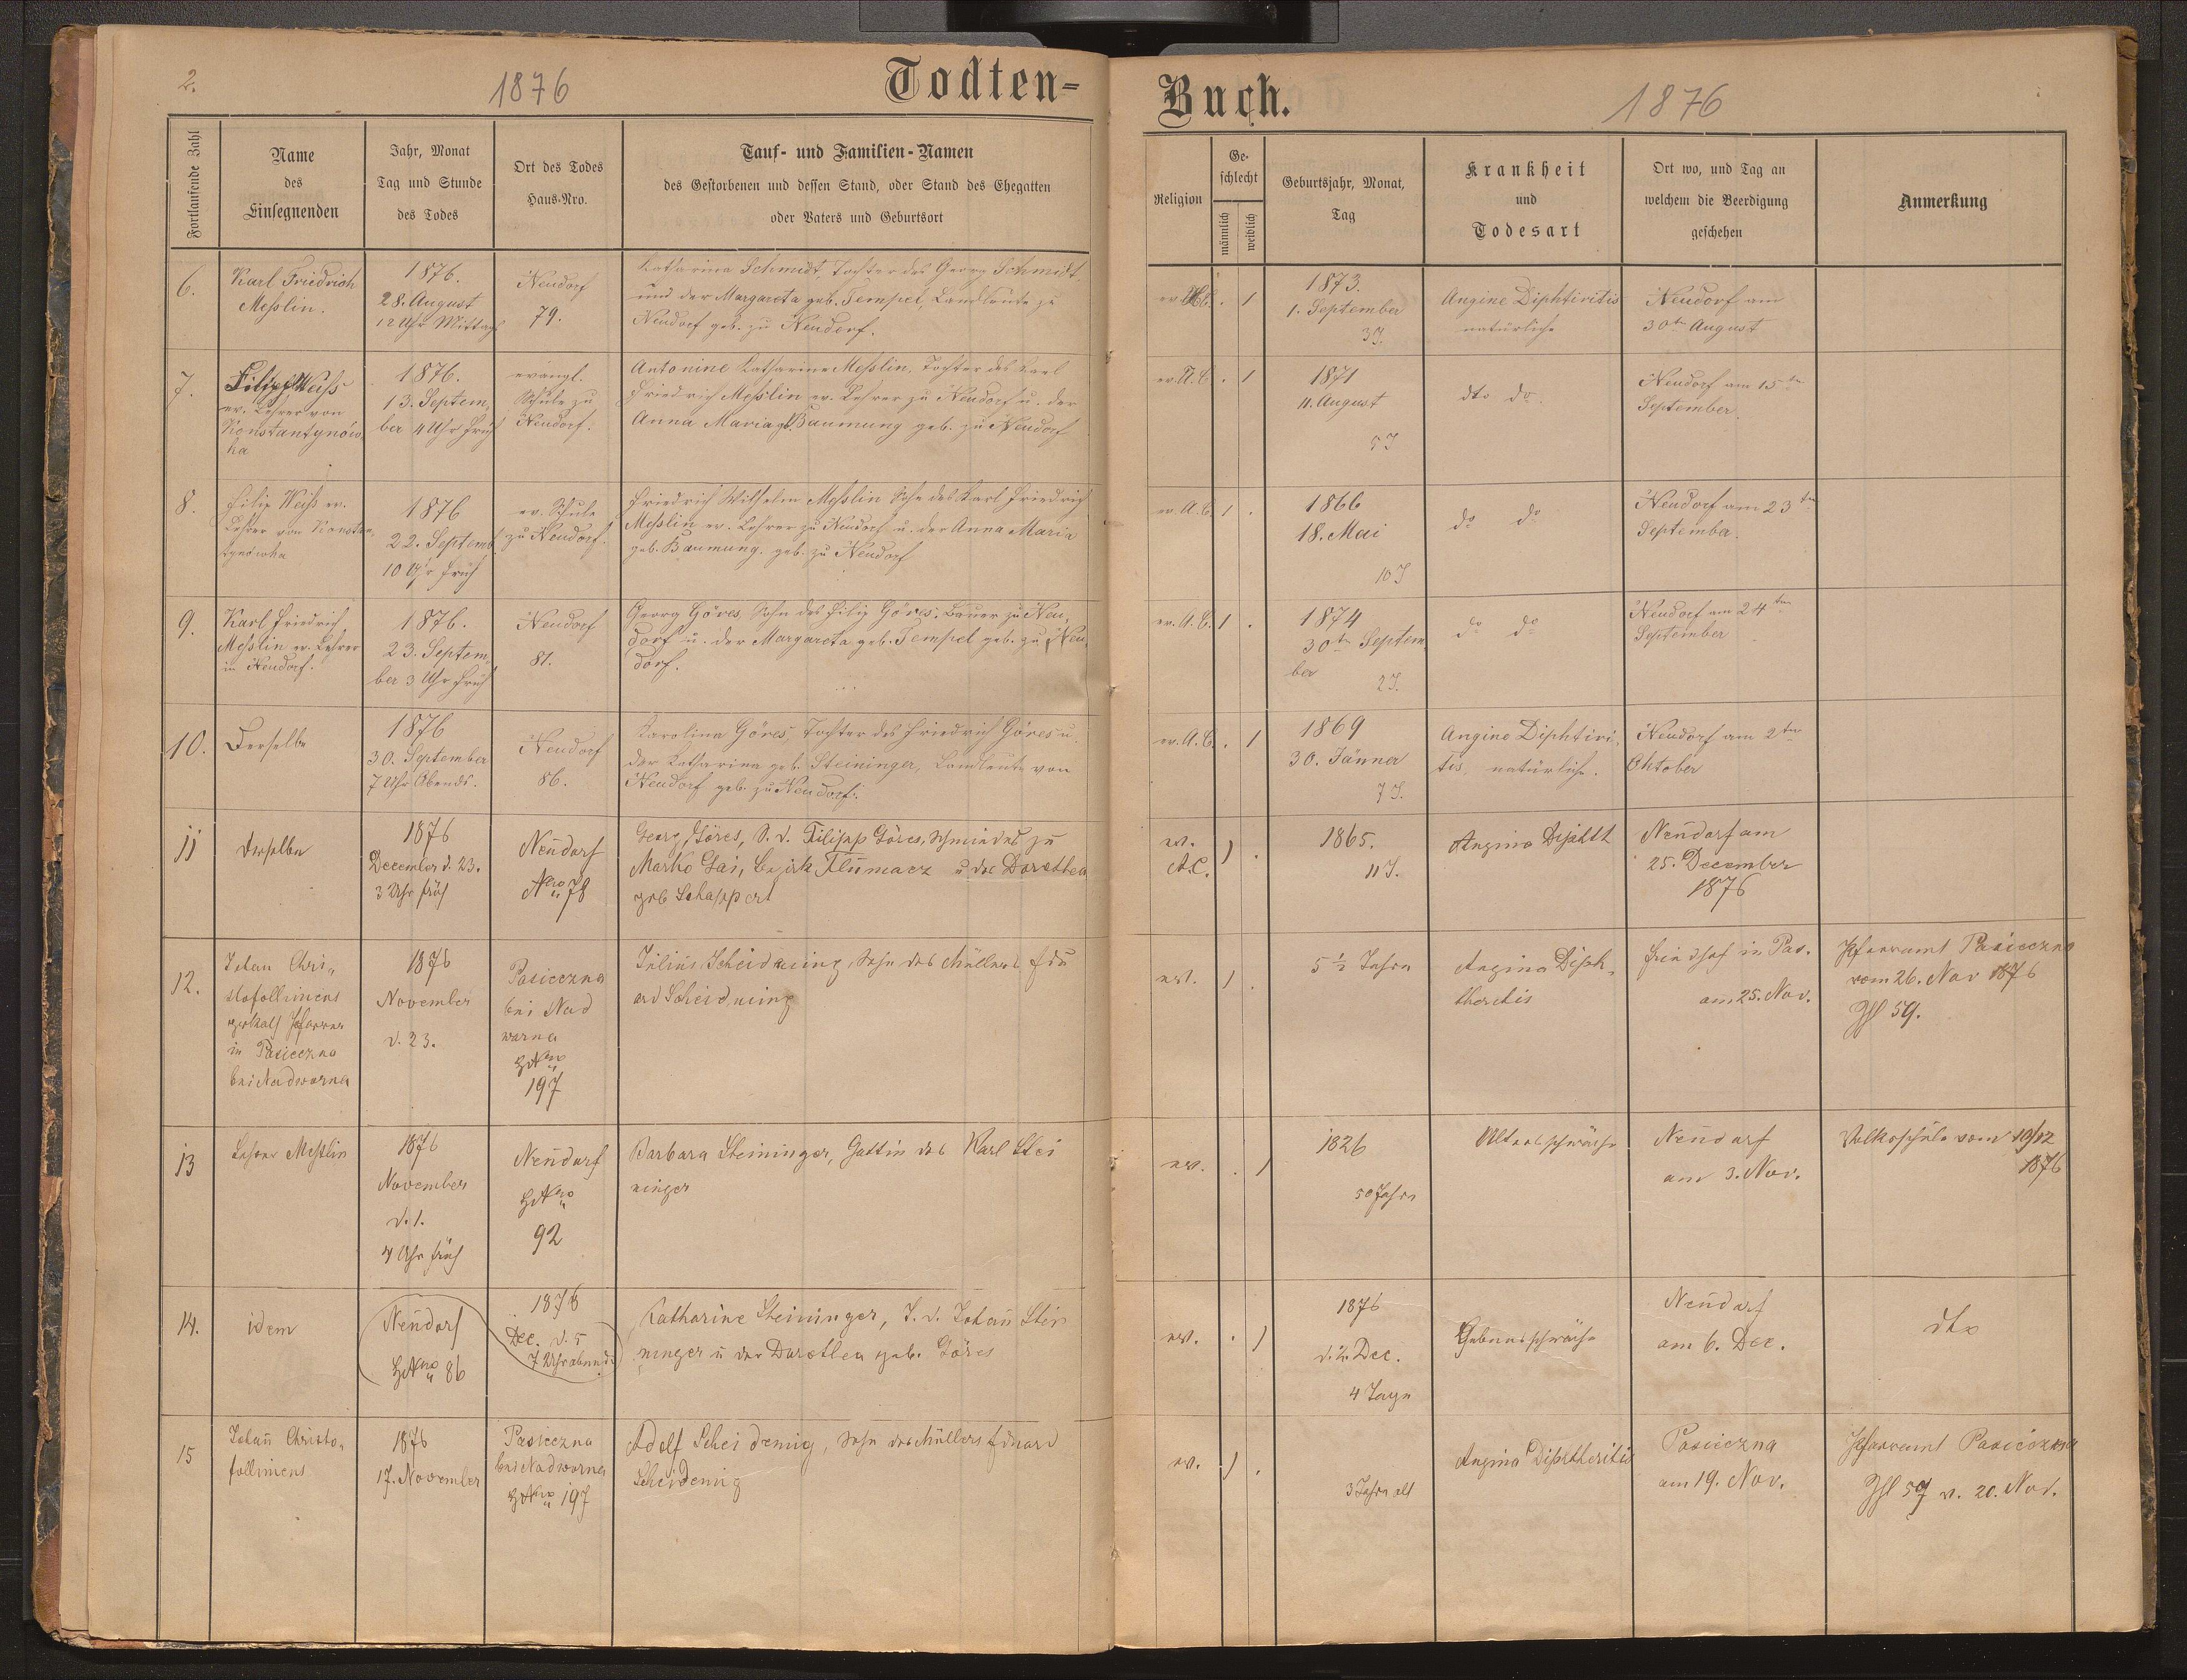 2.
1876
Todten-
Buch.
1876
Fortlaufende Zahl
Name
des
Einsegnenden
Jahr, Monat
Tag und Stunde
des Todes
Ort des Todes
Haus-Nro.
Tauf- und Familien-Namen
des Gestorbenen und dessen Stand, oder Stand des Ehegatten
oder Vaters und Geburtsort
Religion
Ge-
schlecht
männlich
weiblich
Geburtsjahr, Monat,
Tag
Krankheit
und
Todesart
Ort wo, und Tag an
welchem die Beerdigung
geschehen
Anmerkung
6.
Karl Friedrich
Messlin.
1876.
28. August
12 Uhr Mittags
Neudorf
79.
Katharina Schmidt, Tochter des Georg Schmidt
und der Margareta geb. Tempel, Landleute zu
Neudorf geb. zu Neudorf.
. 1
1873.
1. September
3J.
Angine Diphtiritis
natürliche
Neudorf am
30ten August
7.
Filipp Weiss
ev. Lehrer von
Konstantynów
ka
1876.
13. Septem,
ber 4 Uhr früh
evangl.
Schule zu
Neudorf.
Antonine Katharina Messlin, Tochter des Karl
Friedrich Messlin ev. Lehrer zu Neudorf u. der
Anna Maria gb. Baumung geb. zu Neudorf
ev. A. C. . 1
1871
11. August
5J
dto do.
Neudorf am 15ten
September.
8.
Filip Weiss ev.
Lehrer von Konstan,
tynowka
1876
22. Septemb.
10 Uhr früh
ev. Schule
zu Neudorf.
Friedrich Wilhelm Messlin Sohn des Karl Friedrich
Messlin ev. Lehrer zu Neudorf u. der Anna Maria
geb. Baumung. geb. zu Neudorf
ev. A. C. 1 .
1866
18. Mai
10J
do do
Neudorf am 23ten
September.
9.
Karl Friedrich
Messlin ev. Lehrer
in Neudorf.
1876.
23. Septem,
ber 3 Uhr früh
Neudorf
81.
Georg Göres, Sohn des Filip Göres, Bauer zu Neu,
dorf u. der Margareta geb. Tempel geb. zu Neu,
dorf.
ev. A. C. 1 .
1874
30ten Septem
ber
2J.
do do
Neudorf am 24ten
September
10.
Derselbe
1876
30. September
7 Uhr Abends.
Neudorf
86.
Karolina Göres, Tochter des Friedrich Göres u.
der Katharina geb. Steininger, Landleute von
Neudorf geb. zu Neudorf.
ev. A. C. . 1
1869
30. Jänner
7J.
Angine Diphtiri,
tis, natürliche.
Neudorf am 2ten
Oktober
11
Derselbe
1876
December d. 23.
3 Uhr früh
Neudorf
Nro 78
Georg Göres, S. d. Filipp Göres, Schmiedes zu
Marko Gai, Bezirk Tlumacz u der Dorothea
geb Schappert
ev.
A.C. 1 .
1865.
11 J.
Angina Dipht
Neudorf am
25. December
1876
12.
Johan Chri,,
stofolliniens
Pfarrer
in Pasieczna
bei Nadworna
1876
November
d. 23.
Pasieczna
bei Nad
worna
HNro
197
Julius Scheidnuing, Sohn des Müllers Edu
ard Scheidnuing
ev. 1 .
5 1/2 Jahre
Angina Diph,
theritis
Friedhof in Pas.
am 25. Nov.
Pfarramt Pasieczna
vom 26. Nov 1876
Zl 59.
13
Lehrer Messlin
1876
November
d. 1.
4 Uhr früh
Neudorf
HNro
92
Barbara Steininger, Gattin des Karl Stei
ninger
ev. . 1
1826
50 Jahre
Altersschwäche
Neudorf
am 3. Nov.
Volksschule vom 10/12
1876
14.
idem
Neudorf
HNro 86
1876
Dec. d. 5
7 Uhr abends
Katharine Steininger, T. d. Johan Stei
ninger u der Dorothea geb. Göres
ev. . 1
1876
d. 2. Dec.
4 Tage
Geburtsschwäche
Neudorf
am 6. Dec.
dto
15
Johan Christo,
folliniens
1876
17. November
Pasieczna
bei Nadworna
HNro 197
Adolf Scheidemig, Sohn des Müllers Eduard
Scheidemig
ev. 1 .
3 Jahre alt
Angina Diphtheritis
Pasieczna
am 19. Nov.
Pfarramt Pasieczna
Zl 57 v. 20. Nov.